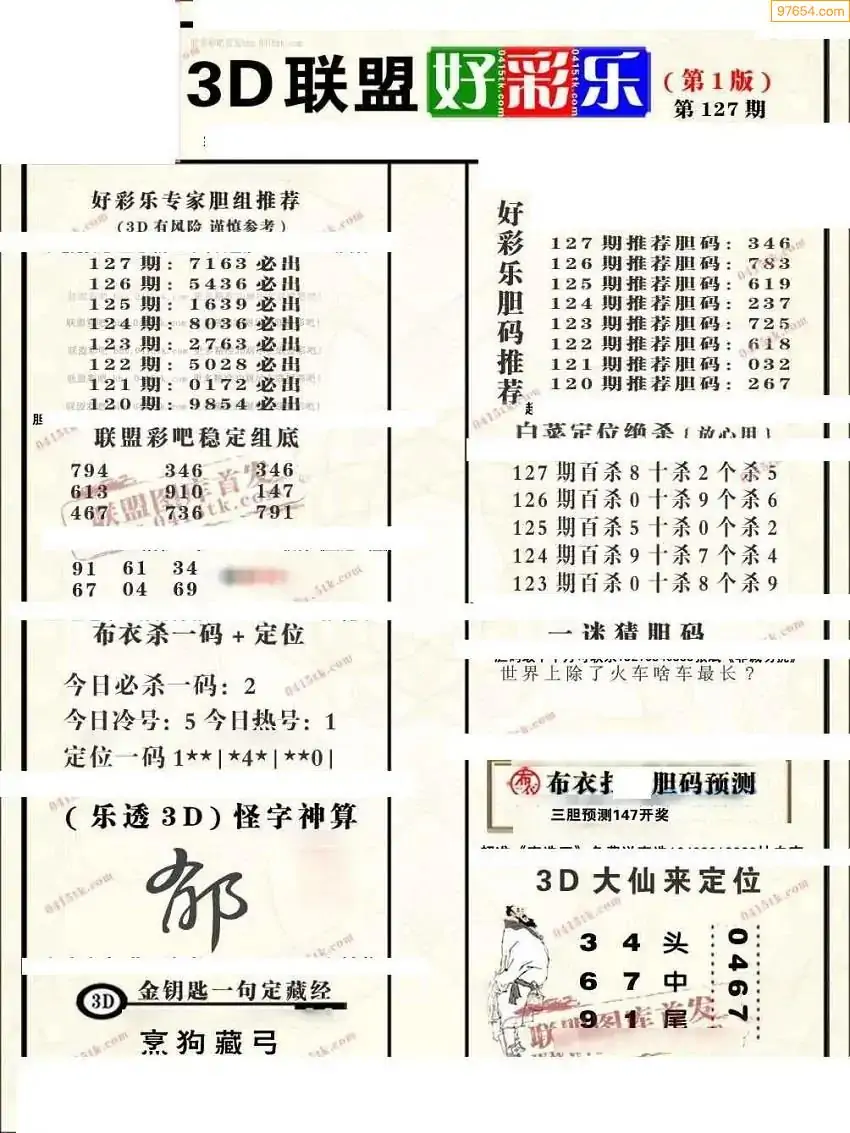 97654.com
3D联盟好彩乐(第1版)
第127期
好彩乐专家胆组推荐
(3D有风险 谨慎参考)
127期: 7163必出
126期: 5436必出
125期: 1639必出
124期: 8036必出
123期: 2763必出
122期: 5028必出
121期: 0172必出
120期: 9854必出
联盟彩吧稳定组底
794 346 346
613 910 147
467 736 791
91 61 34
67 04 69
布衣杀一码+定位
今日必杀一码: 2
今日冷号: 5 今日热号: 1
定位一码1**|*4*|**0|
(乐透3D)怪字神算
郁
3D 金钥匙一句定藏经
烹狗藏弓
好彩乐胆码推荐
127期推荐胆码: 346
126期推荐胆码: 783
125期推荐胆码: 619
124期推荐胆码: 237
123期推荐胆码: 725
122期推荐胆码: 618
121期推荐胆码: 032
120期推荐胆码: 267
白菜定位绝杀(放心用)
127期百杀8十杀2个杀5
126期百杀0十杀9个杀6
125期百杀5十杀0个杀2
124期百杀9十杀7个杀4
123期百杀0十杀8个杀9
一迷猜胆码
世界上除了火车啥车最长?
布衣 胆码预测
三胆预测147开奖
3D大仙来定位
3 4 头
6 7 中
9 1 尾
0467
联盟图库首发
0415tk.com